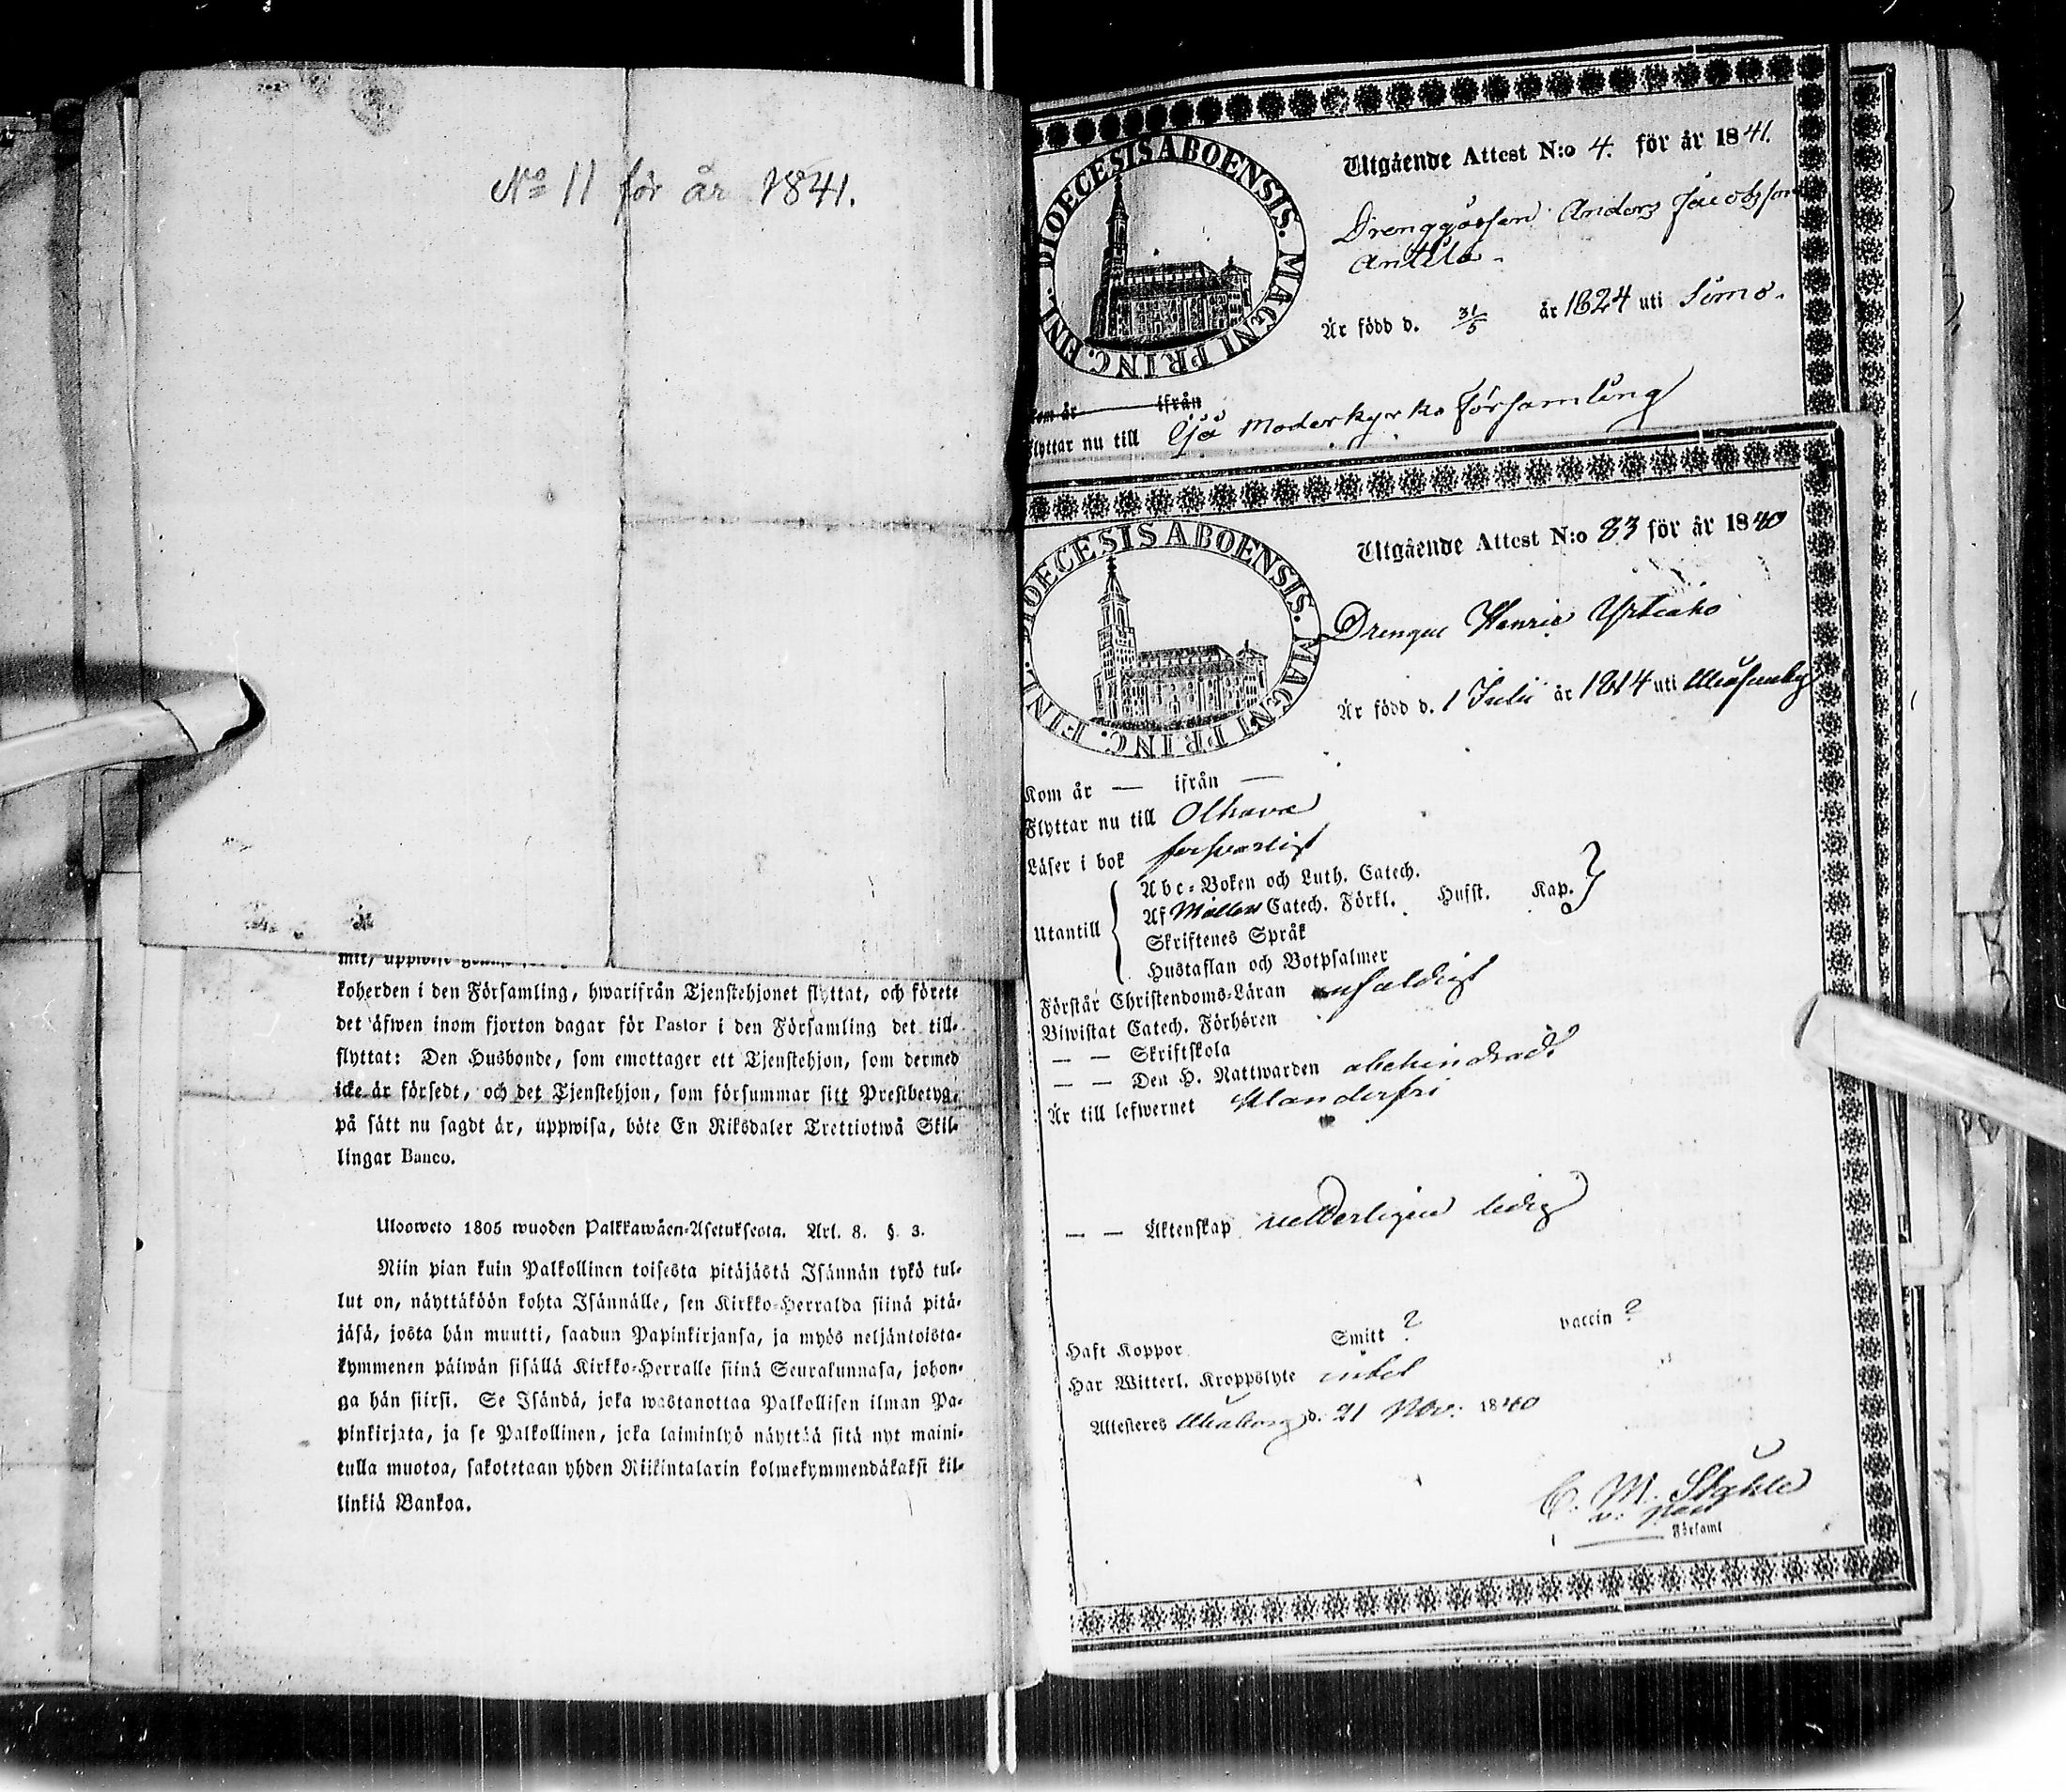 No 11 för år 1841.
koherden i den Församling, hwarifrån Tjenstehjonet flyttat, och förete
det äfwen inom fjorton dagar för Pastor i den Församling det till-
flyttat: Den Husbonde, som emottager ett Tjenstehjon, som dermed
icke är försedt, och det Tjenstehjon, som försummar sitt Prestbetyg,
på sätt nu sagdt är, uppwisa, böte En Riksdaler Trettiotwå Skil-
lingar Banco.
Ulosweto 1805 wuoden Palkkawäen-Asetuksesta. Art. 8. §. 3.
Niin pian kuin Palkollinen toisesta pitäjästä Isännän tykö tul-
lut on, näyttäköön kohta Isännälle, sen Kirkko-Herralda siinä pitä-
jäsä, josta hän muutti, saadun Papinkirjansa, ja myös neljäntoista-
kymmenen päiwän sisällä Kirkko-Herralle siinä Seurakunnasa, johon-
ga hän siirsi. Se Isändä, joka wastanottaa Palkollisen ilman Pa-
pinkirjata, ja se Palkollinen, joka laiminlyö näyttää sitä nyt maini-
tulla muotoa, sakotetaan yhden Riikintalarin kolmekymmendäkaksi kil-
linkiä Bankoa.
DIOECESIS ABOENSIS. MAGNI PRINC. FINL.
Utgående Attest N:o 4. för år 1841.
Drenggåssen Anders Jacobsson
Anttila
Är född d. 31/5 år 1824 uti Simo.
Kom år ifrån
Flyttar nu till Ijå Moderkyrko Församling
DIOECESIS ABOENSIS. MAGNI PRINC. FINL.
Utgående Attest N:o 83 för år 1840
Drengen Henric
Är född d. 1 Julii år 1814 uti
Kom år — ifrån —
Flyttar nu till Olhava
Läser i bok försvarligt
Utantill
Abc-Boken och Luth. Catech.
Af Möllers Catech. Förkl. Husst. Kap.
Skriftenes Språk
Hustaflan och Botpsalmer
Förstår Christendoms-Läran enfaldigt
Biwistat Catech. Förhören
— — Skriftskola
— — Den H. Nattwarden obehindrad
Är till lefwernet klanderfri
— — Äktenskap ledig
Haft Koppor Smitt ? vaccin ?
Har Witterl. Kroppslyte intet
Attesteres Uleåborg d. 21 Nov. 1840
C. M. Ståhle
Församl